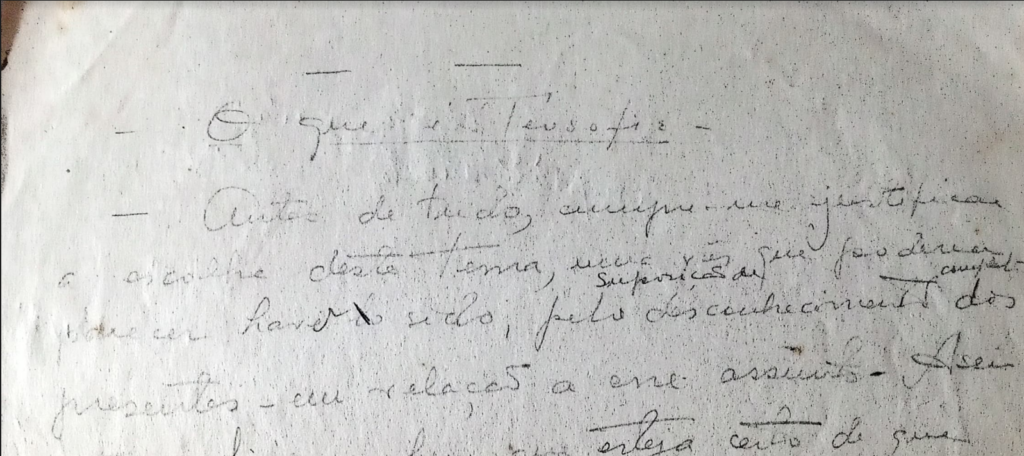 - O que é a Teosofia -
- Antes de tudo, cumpre-me justificar
a escolha deste tema, uma vês que poderia
suposição de
parecer haver sido, pelo desconhecimento dos
presentes - em relação a esse assunto -
esteja certo de que